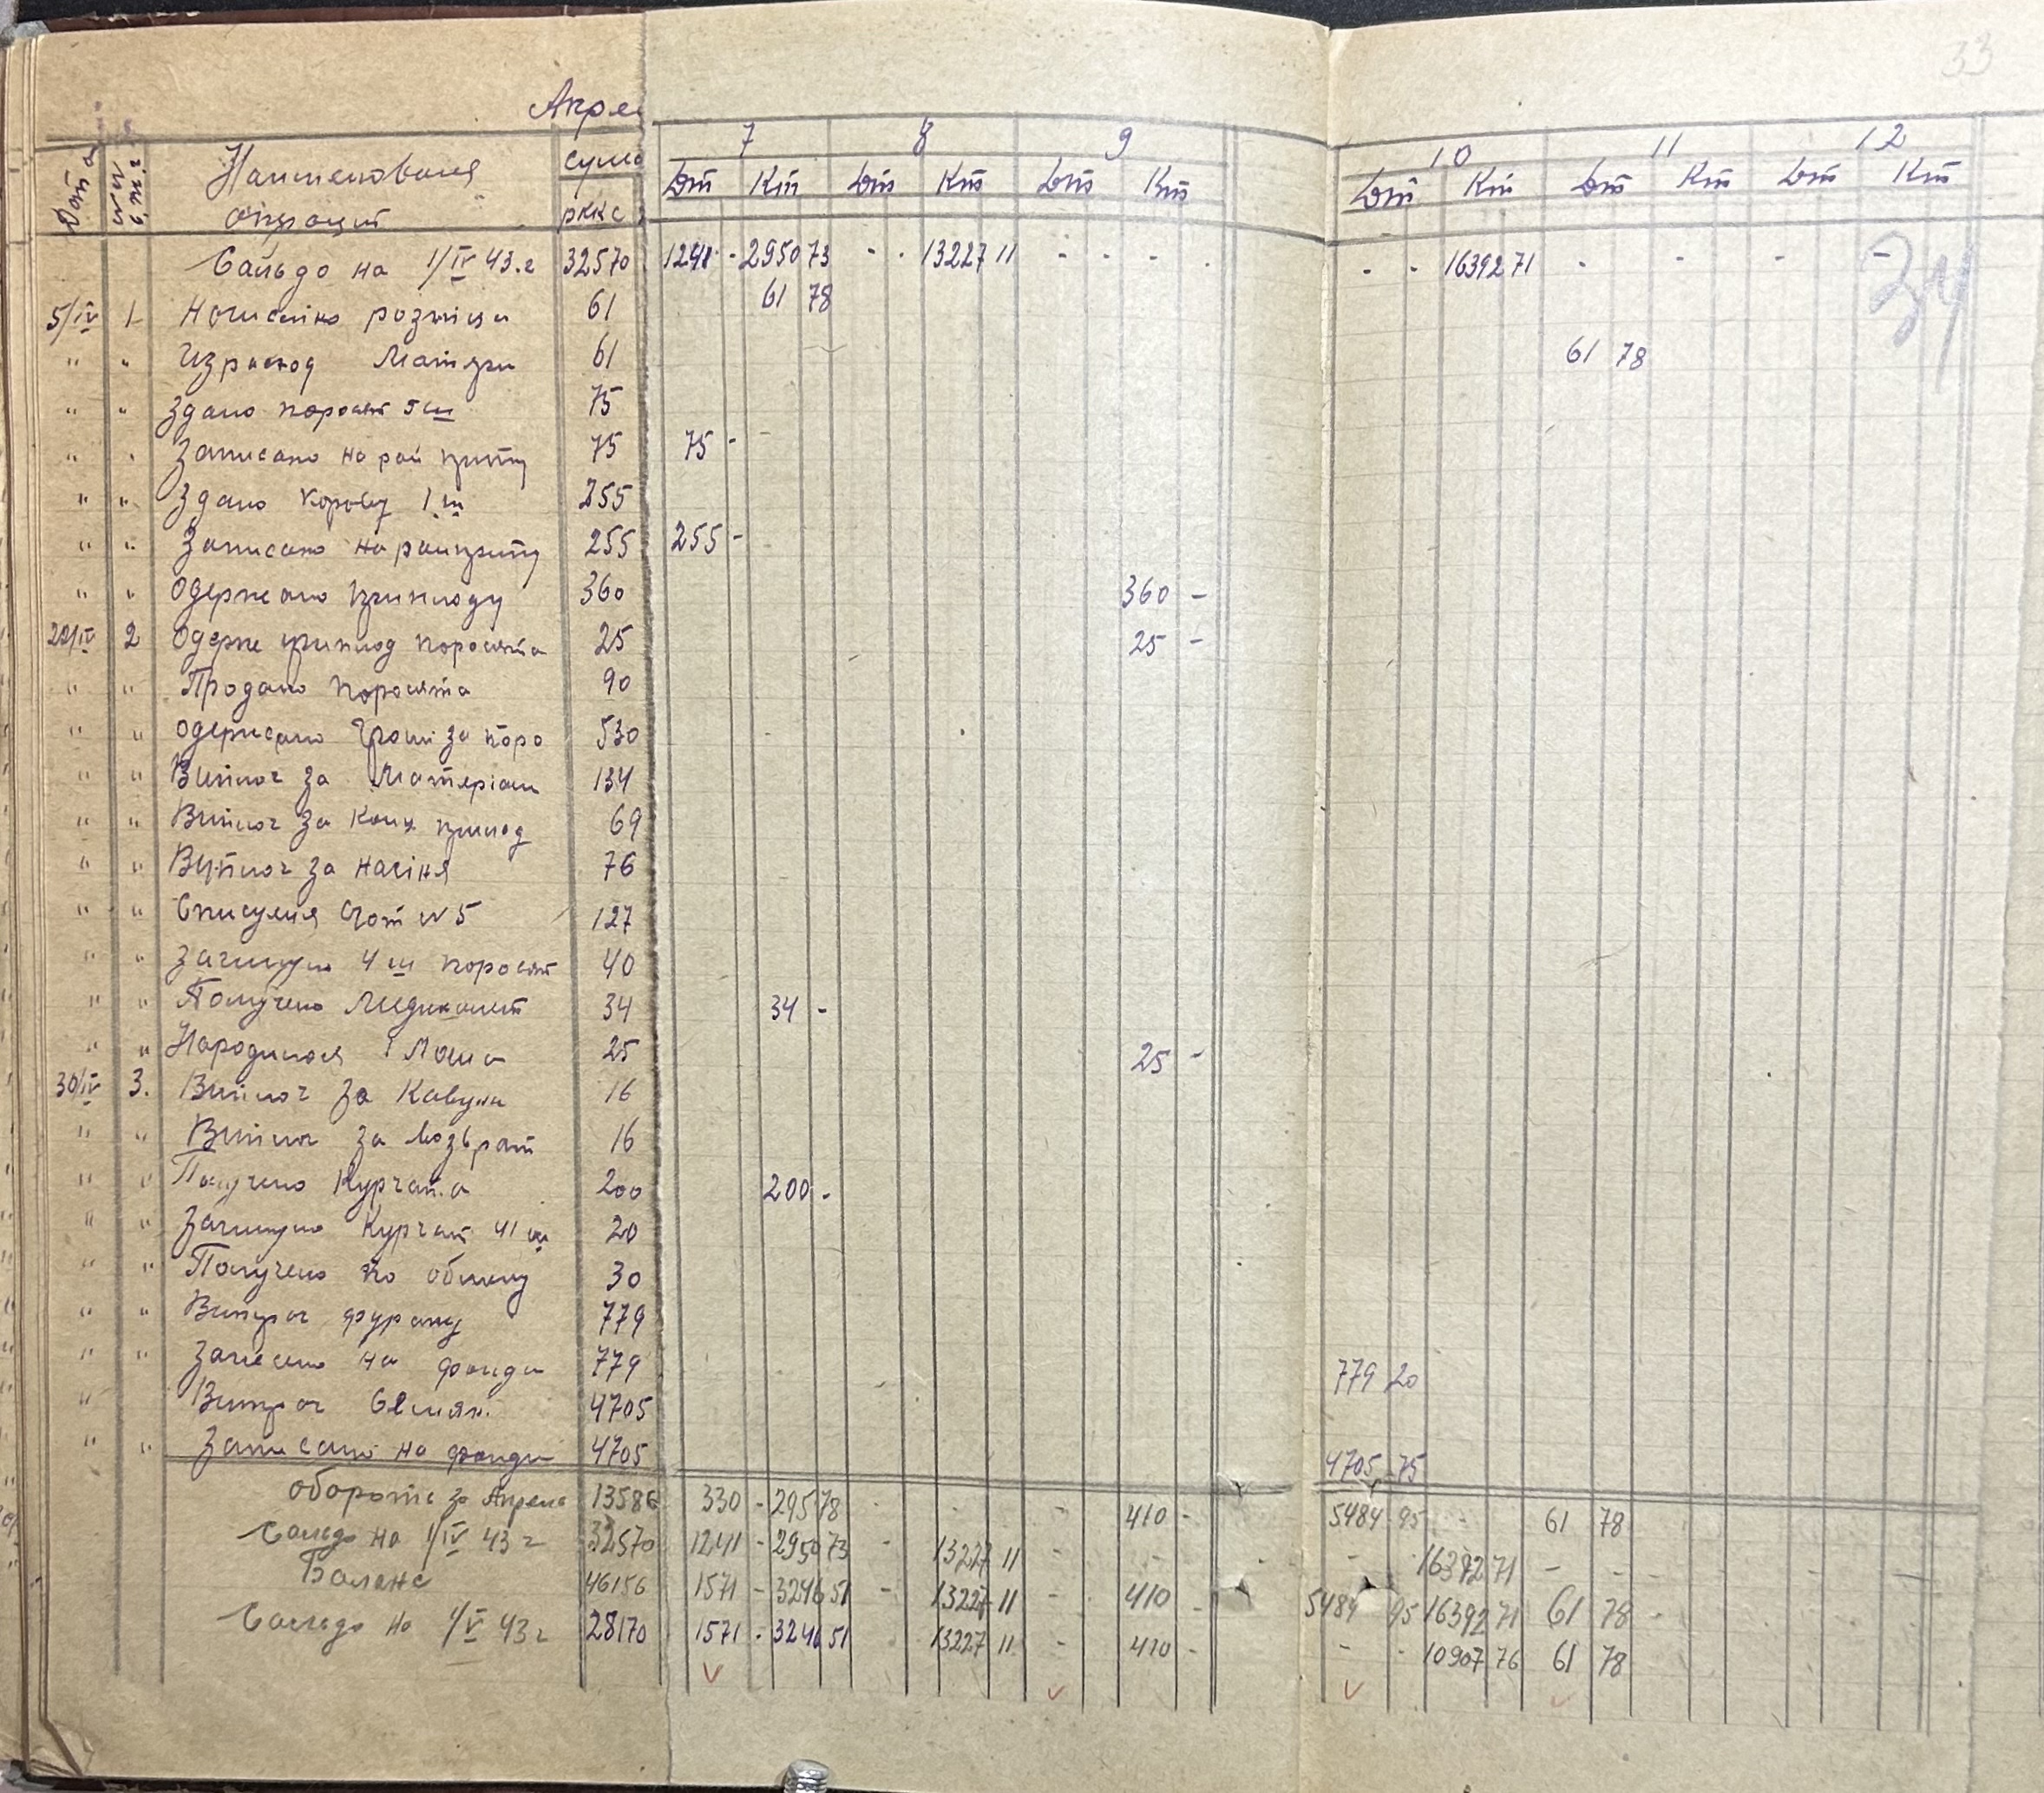 33
34
Апрел
7 8 9 10 11 12
Дата Наименования операций сума рккс Дт Кт Дт Кт Дт Кт Дт Кт Дт Кт Дт Кт
Сальдо на 1/IV 43.г 32570 1241 - 2950 73 - - 13227 11 - - - - - - 16392 71 - - - -
5/IV 1 Начислено розници 61 61 78
" " Израсход 61 61 78
" " Здано поросят 5 ш 75
" " Записано на рай 75 75 -
" " Здано Корову 1 ш 255
" " Записано на рай 255 255 -
" " Одержано приплоду 360 360 -
20/IV 2 Одерже приплод поросята 25 25 -
" " Продано поросята 90
" " одержано Гроши за поро 530
" " Виплач за Матеріали 134
" " Виплач за 69
" " Виплач за насіня 76
" " Списуемя Счот №5 127
" " Загинуло 4 ш поросят 40
" " Получено Медикамент 34 34 -
" " Народилося 1 Лоша 25 25 -
30/IV 3. Виплач за Кавуни 16
" " Виплач за возврат 16
" " Получено Курчата 200 200 -
" " Загинуло Курчат 41 ш 20
" " Получено по обмену 30
" " Витрач фуражу 779
" " Занесено на фонди 779 779 20
" Витрач 4705
" " Записано на фонди 4705 4705 75
обороты за Апрель 13586 330 - 295 78 - - - - 410 - 5484 95 - 61 78
Сальдо на 1/IV 43 г 32570 1241 - 2950 73 - 13227 11 - - - - 16392 71 - -
Баланс 46156 1571 - 3246 51 - 13227 11 - 410 - 5484 95 16392 71 61 78 -
Сальдо на 1/V 43 г 28170 1571 - 3246 51 13227 11 - 410 - - - 10907 76 61 78